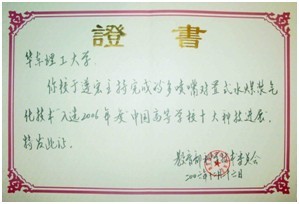 證書
华东理工大学
你校于遵宏主持完成的多喷嘴对置式水煤浆气
化技术入选2006年度中国高等学校十大科技进展。
特发此证。
教育部科学技术委员会